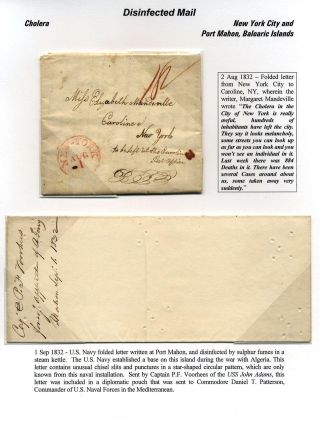 Disinfected Mail
Cholera
New York City and
Port Mahon, Balearic Islands
2 Aug 1832 – Folded letter
from New York City to
Caroline, NY, wherein the
writer, Margaret Mandeville
wrote "The Cholera in the
City of New York is really
awful, hundreds of
inhabitants have left the city.
They say it looks melancholy,
some streets you can look up
as far as you can look and you
won't see an individual in it.
Last week there was 884
Deaths in it. There have been
several Cases around about
us, some taken away very
suddenly."
Miss Elizabeth Mandeville
Caroline
New York
to be left at the Caroline
Post Office
AUG
Mahon Sept 1. 1832
1 Sep 1832 - U.S. Navy folded letter written at Port Mahon, and disinfected by sulphur fumes in a
steam kettle. The U.S. Navy established a base on this island during the war with Algeria. This
letter contains unusual chisel slits and punctures in a star-shaped circular pattern, which are only
known from this naval installation. Sent by Captain P.F. Voorhees of the USS John Adams, this
letter was included in a diplomatic pouch that was sent to Commodore Daniel T. Patterson,
Commander of U.S. Naval Forces in the Mediterranean.